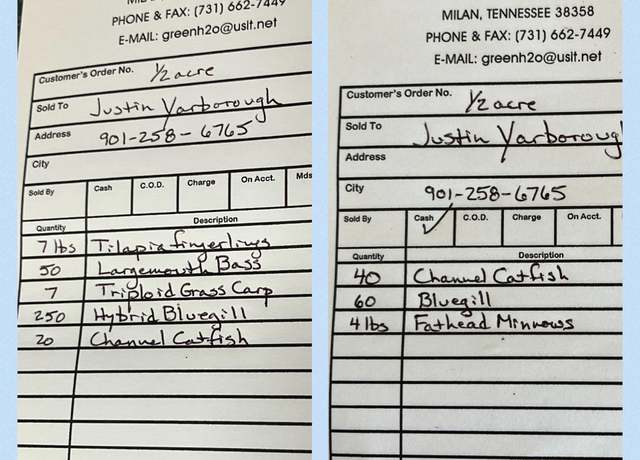 PHONE & FAX: (731) 662-7449
E-MAIL: greenh2o@uslt.net
Customer's Order No. 1/2 acre
Sold To Justin Yarborough
Address 901-258-6765
City
Sold By Cash C.O.D. Charge On Acct. Mds
Quantity Description
7 lbs Tilapia fingerlings
50 Largemouth Bass
7 Triploid Grass Carp
250 Hybrid Bluegill
20 Channel Catfish
MILAN, TENNESSEE 38358
PHONE & FAX: (731) 662-7449
E-MAIL: greenh2o@uslt.net
Customer's Order No. 1/2 acre
Sold To Justin Yarborough
Address
City 901-258-6765
Sold By Cash ✓ C.O.D. Charge On Acct.
Quantity Description
40 Channel Catfish
60 Bluegill
4 lbs Fathead Minnows